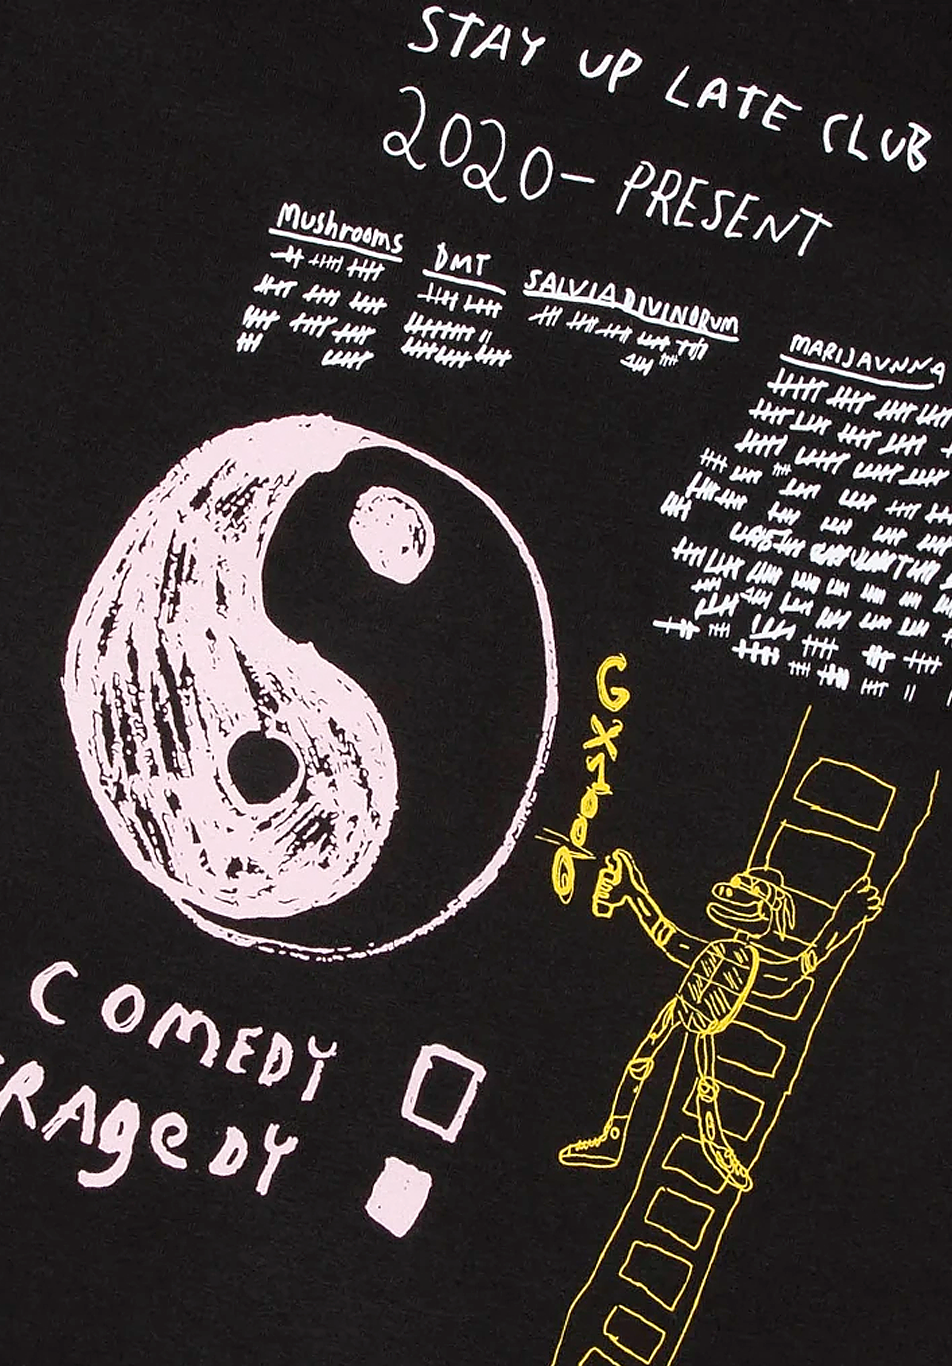 STAY UP LATE CLUB
2020- PRESENT
Mushrooms
DMT
SALVIADIVINORUM
MARIJAUNNA
COMEDY
TRAGEDY